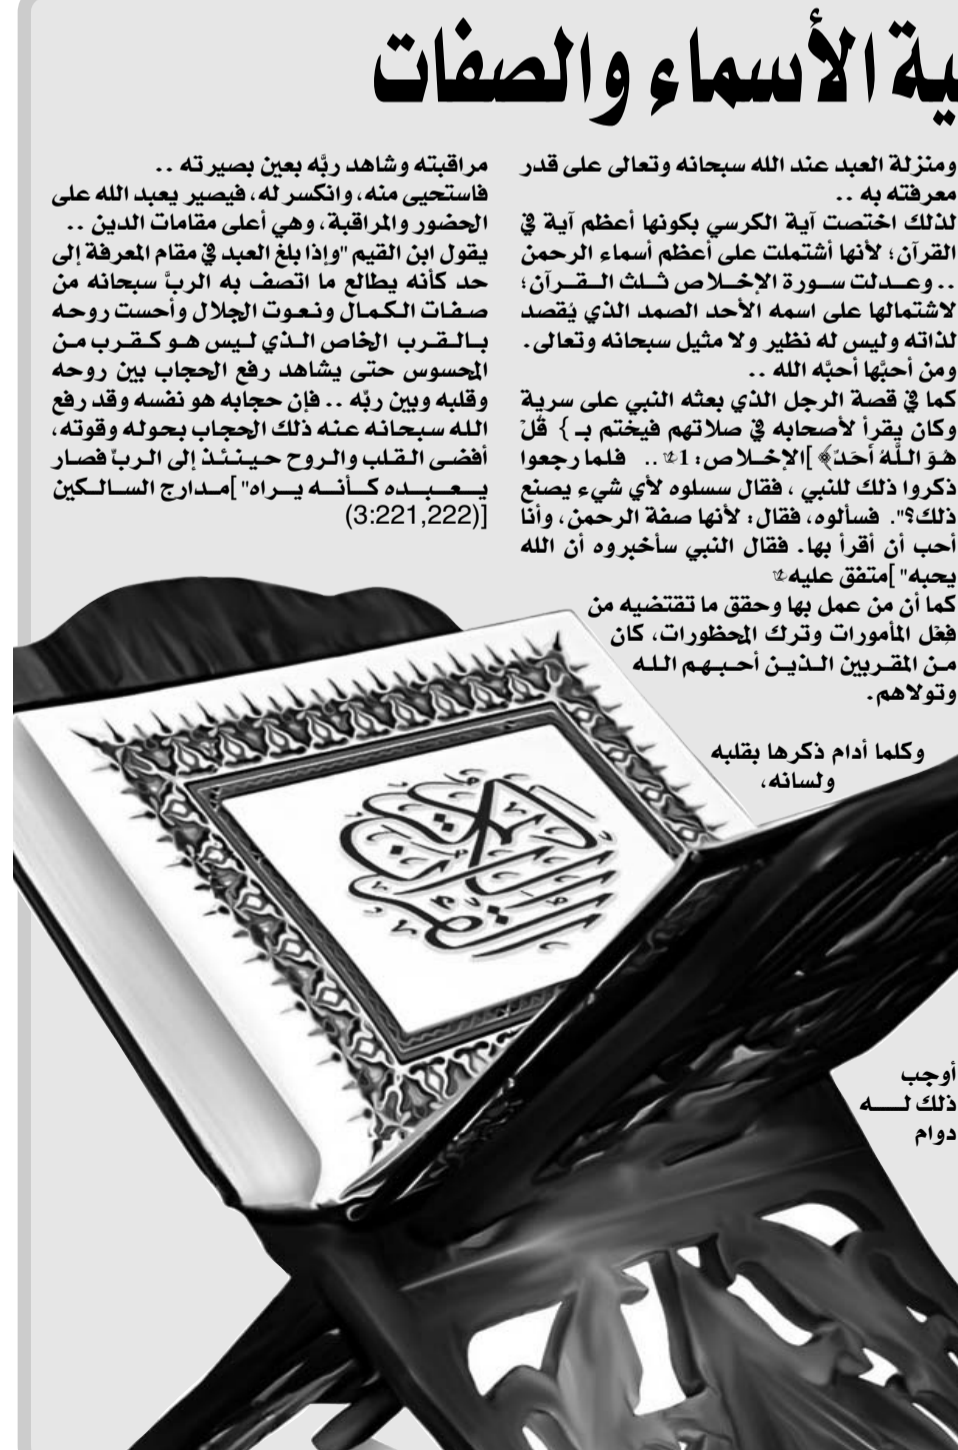 ية الأسماء والصفات
ومنزلة العبد عند الله سبحانه وتعالى على قدر
معرفته به ..
لذلك اختصت آية الكرسي بكونها أعظم آية في
القرآن؛ لأنها أشتملت على أعظم أسماء الرحمن
.. وعـدلت سـورة الإخـلاص ثـلث الـقـرآن؛
لاشتمالها على اسمه الأحد الصمد الذي يُقصد
لذاته وليس له نظير ولا مثيل سبحانه وتعالى.
ومن أحبَّها أحبَّه الله ..
كما في قصة الرجل الذي بعثه النبي على سرية
وكان يقرأ لأصحابه في صلاتهم فيختم بـ } قُلْ
هُوَ اللَّهُ أَحَدٌ﴾ ]الإخـلاص: 1 .. فلما رجعوا
ذكروا ذلك للنبي ، فقال سسلوه لأي شيء يصنع
ذلك؟". فسألوه، فقال: لأنها صفة الرحمن، وأنا
أحب أن أقرأ بها. فقال النبي سأخبروه أن الله
يحبه" ]متفق عليه
كما أن من عمل بها وحقق ما تقتضيه من
فِعْل المأمورات وترك المحظورات، كان
مـن المقربين الـذيـن أحـبـهـم الـلـه
وتولاهم.
وكلما أدام ذكرها بقلبه
ولسانه،
أوجب
ذلك لـــه
دوام
مراقبته وشاهد ربَّه بعين بصيرته ..
فاستحيى منه، وانكسر له، فيصير يعبد الله على
الحضور والمراقبة، وهي أعلى مقامات الدين ..
يقول ابن القيم "وإذا بلغ العبد في مقام المعرفة إلى
حد كأنه يطالع ما اتصف به الربَّ سبحانه من
صفات الكمـال ونعوت الجلال وأحست روحه
بـالـقـرب الخاص الـذي لـيس هـو كـقـرب مـن
المحسوس حتى يشاهد رفع الحجاب بين روحه
وقلبه وبين ربِّه .. فإن حجابه هو نفسه وقد رفع
الله سبحـانه عنه ذلك الحجاب بحوله وقوته،
أفضى الـقلب والـروح حـيـنـئـذ إلى الـربِّ فصار
يـــعـــبـــده كـــأنـــه يـــراه" ]مـدارج السـالـكين
[(3:221,222)
القرآن الكريم